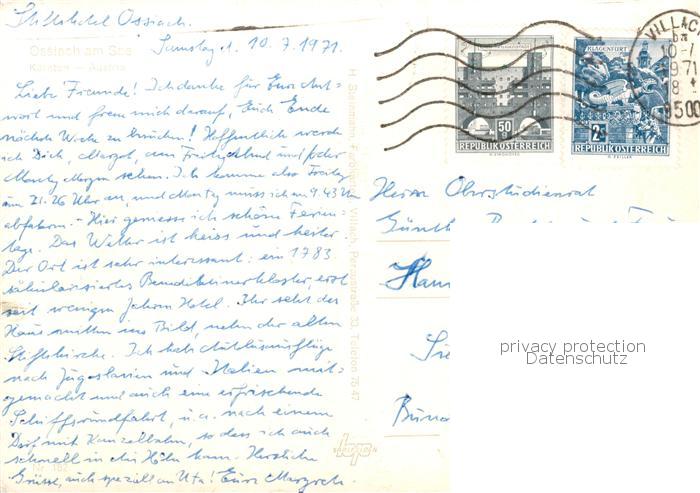 Stiftshotel Ossiach.
Ossiach am See
Kärnten – Austria
Samstag, 10.7.1971.
Liebe Freunde! Ich danke für Eure Ant-
wort und freue mich darauf, Euch Ende
nächster Woche zu besuchen! Hoffentlich werde
ich Dich, Margot, am Freitagabend und/oder
Montag Morgen sehen. Ich komme also Freitag
um 21.26 Uhr an, und Montag muss ich um 9.43 Uhr
abfahren. – Hier geniesse ich schöne Ferien-
tage. Das Wetter ist heiss und heiter.
Der Ort ist sehr interessant: ein 1783
säkularisiertes Benediktinerkloster, erst
seit wenigen Jahren Hotel. Ihr seht das
Haus mitten im Bild, neben der alten
Stiftskirche. Ich hab Autobusausflüge
nach Jugoslavien und Italien mit-
gemacht und auch eine erfrischende
Schiffsrundfahrt, u.a. nach einem
Dorf mit Kanzelbahn, so dass ich auch
schnell in die Höhe kam. Herzliche
Grüsse, auch speziell an Uta! Eure
Nr. 182
Farbbilder, Villach, 33, Telefon 76 47
VILLACH
10.7.
71
8
9500
50 g
REPUBLIK ÖSTERREICH
KLAGENFURT
2 S
REPUBLIK ÖSTERREICH
Herrn Oberstudienrat
Günth
Han
Sie
privacy protection
Datenschutz